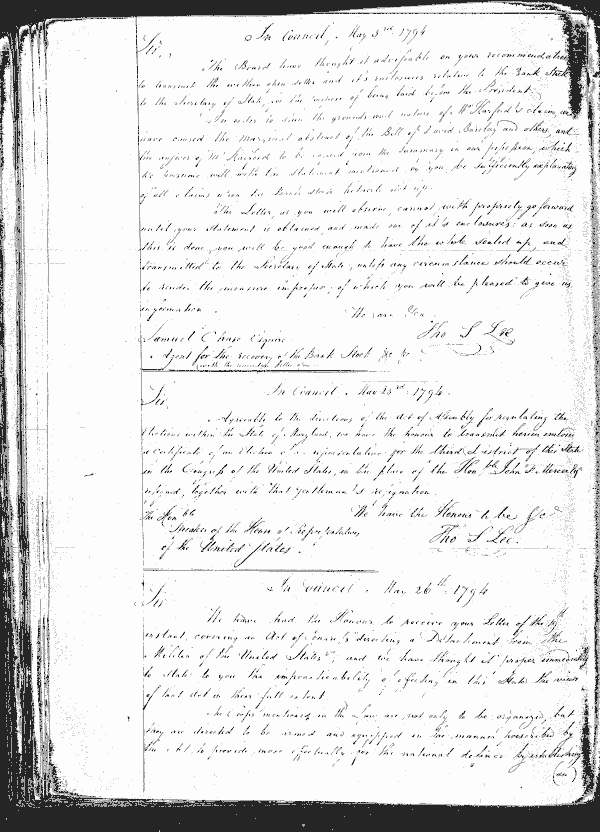 In Council, May 3rd 1794
Sir,
The Board have thought it adviseable on your recommendation
to transmit the within open letter and it's enclosures relative to the Bank Stock
to the Secretary of State, for the purpose of being laid before the President.
In order to the grounds and nature of Mr Harford's claim, we
have caused the marginal abstract of the Bill of David Barclay and others, and
the answer of Mr Harford to be from the Summary in our possession, which
we presume will with the statement mentioned by you, be sufficiently explanatory
of all claims upon the Bank Stock hitherto set up.
The Letter, as you will observe, cannot with propriety go forward
until your Statement is obtained, and made one of it's enclosures: as soon as
this is done, you will be good enough to have the whole sealed up, and
transmitted to the Secretary of State, unless any circumstance should occur
to render the measure improper; of which you will be pleased to give us
information.
We are &ca
Tho S Lee
Samuel Chase Esquire
Agent for the recovery of the Bank Stock &c &c
In Council. May 23rd. 1794.
Sir,
Agreeable to the directions of the Act of Assembly for regulating the
Elections within the State of Maryland, we have the honour to transmit herein enclosed
a certificate of an Election of a representative for the third District of this State
in the Congress of the United States, in the place of the Honble John F. Mercer Esqr
resigned, together with that gentleman's resignation.
We have the Honour to be &c
The Honble
Speaker of the House of Representatives
Tho S Lee.
of the United States.
In Council. May 26th. 1794
Sir
We have had the Honour to receive your Letter of the 19th
instant, covering an Act of Congress directing a Detachment from the
Militia of the United States, and we have thought it proper immediately
to state to you the impracticability of effecting in this State the views
of that Act in their full extent.
The Corps mentioned in the Law are not only to be organized, but
they are directed to be armed and equipped in the manner prescribed by
the Act, to provide more effectually for the national defence by establishing
an